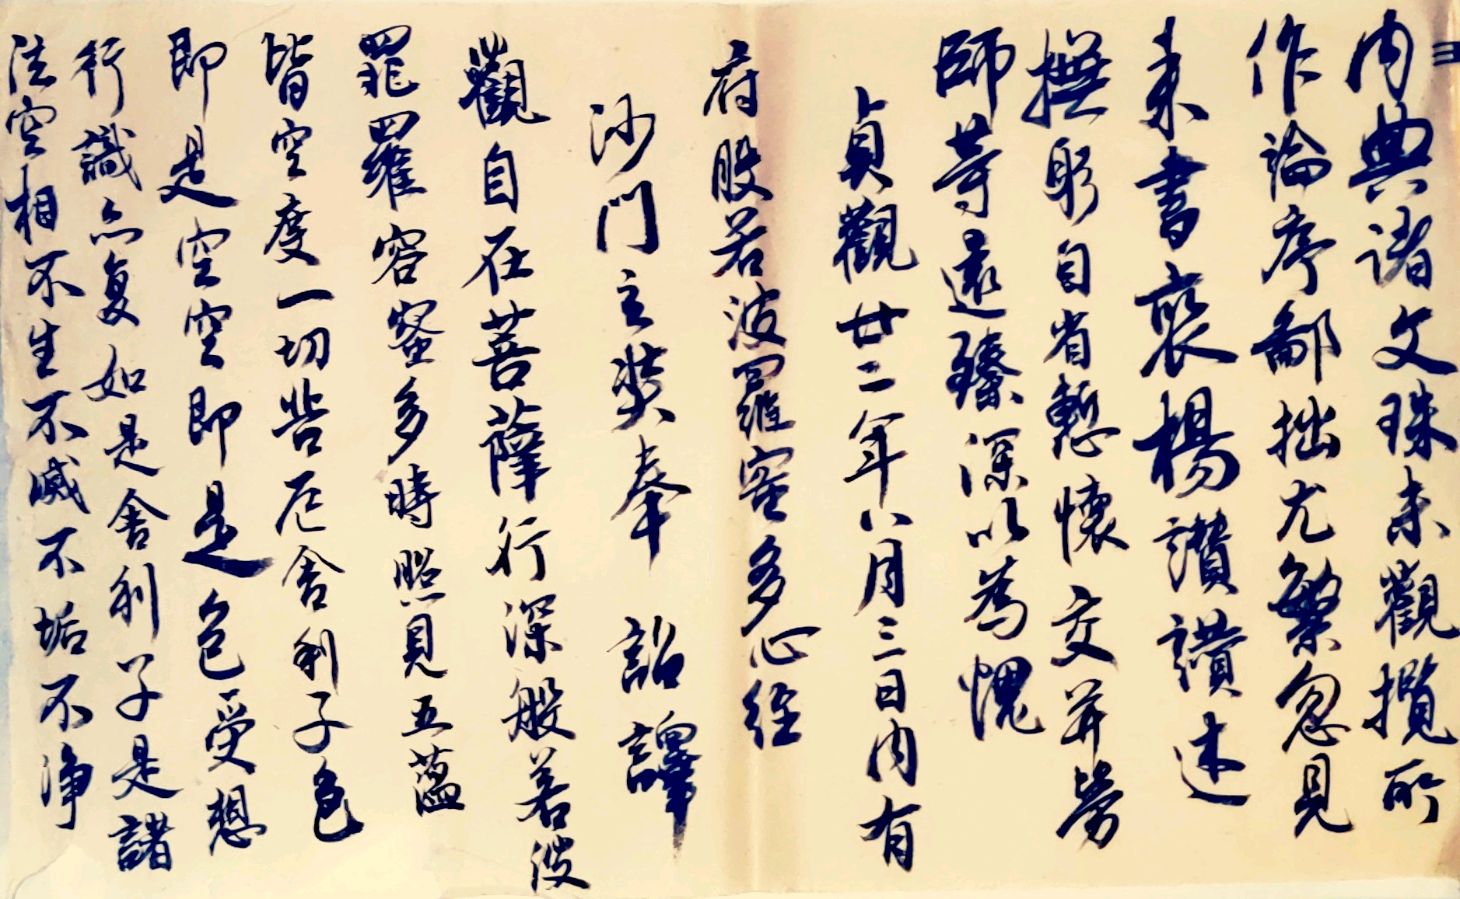 内典諸文殊未觀攬所
作論序鄙拙尤繁忽見
来書褒楊讃讃述
撫躬自省慙懷交并勞
師等遠臻深以為愧
貞觀廿二年八月三日内有
府股若波羅蜜多心経
沙門玄奘奉 詔譯
觀自在菩薩行深般若波
罪羅容蜜多時照見五蘊
皆空度一切苦厄舍利子色
即是空空即是色受想
行識亦复如是舍利子是諸
法空相不生不滅不垢不净